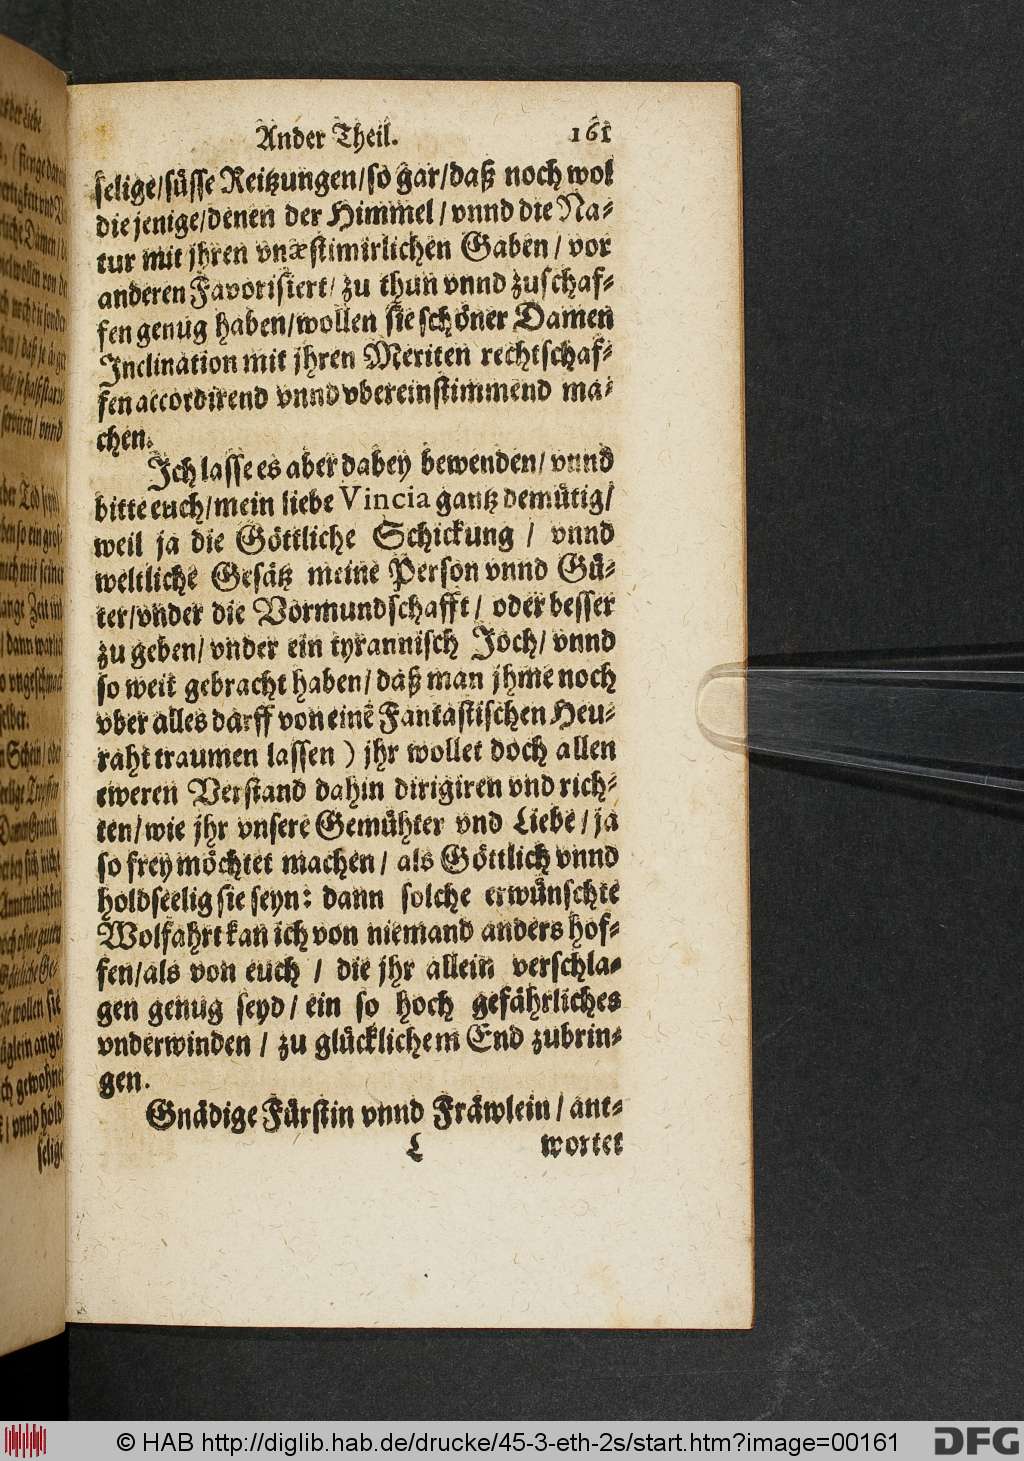 Ander Theil. 161
selige/süsse Reitzungen/so gar/daß noch wol
die jenige/denen der Himmel/vnnd die Na-
tur mit jhren vnæstimirlichen Gaben/vor
anderen Favorisiert/zu thun vnnd zuschaf-
fen genug haben/wollen sie schöner Damen
Inclination mit jhren Meriten rechtschaf-
fen accordirend vnnd vbereinstimmend ma-
chen.
Ich lasse es aber dabey bewenden/vnnd
bitte euch/mein liebe Vincia gantz demütig/
weil ja die Göttliche Schickung / vnnd
weltliche Gesätz meine Person vnnd Gü-
ter/vnder die Vormundschafft/ oder besser
zu geben/vnder ein tyrannisch Joch/vnnd
so weit gebracht haben/daß man jhme noch
vber alles darff von einē Fantastischen Heu-
raht traumen lassen ) jhr wollet doch allen
eweren Verstand dahin dirigiren vnd rich-
ten/wie jhr vnsere Gemühter vnd Liebe/ja
so frey möchtet machen/ als Göttlich vnnd
holdseelig sie seyn: dann solche erwünschte
Wolfahrt kan ich von niemand anders hof-
fen/als von euch / die jhr allein verschla-
gen genug seyd/ein so hoch gefährliches
vnderwinden / zu glücklichem End zubrin-
gen.
Gnädige Fürstin vnnd Fräwlein/ant-
L wortet
© HAB http://diglib.hab.de/drucke/45-3-eth-2s/start.htm?image=00161
DFG